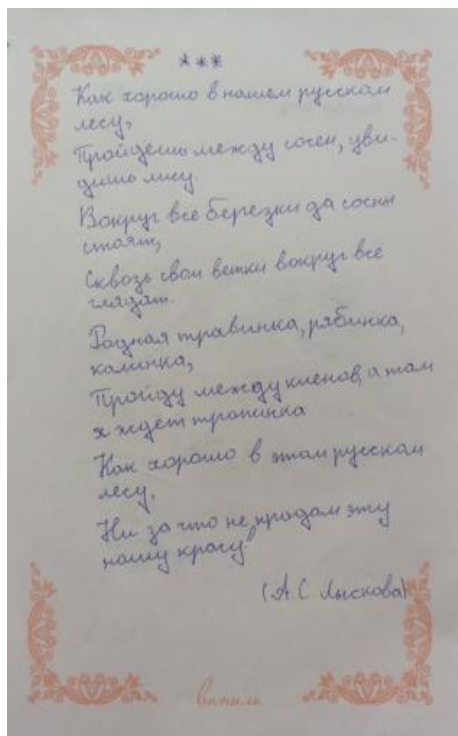 ***
Как хорошо в нашем русском
лесу,
Пройдешь между сосен, уви-
дишь лису.
Вокруг все березки да сосны
стоят,
Сквозь свои ветки вокруг все
глядят.
Родная травинка, рябинка,
калинка,
Пройду между кленов, а там
ждёт тропинка
Как хорошо в этом русском
лесу,
Ни за что не продам эту
нашу красу
(А С Лыскова)